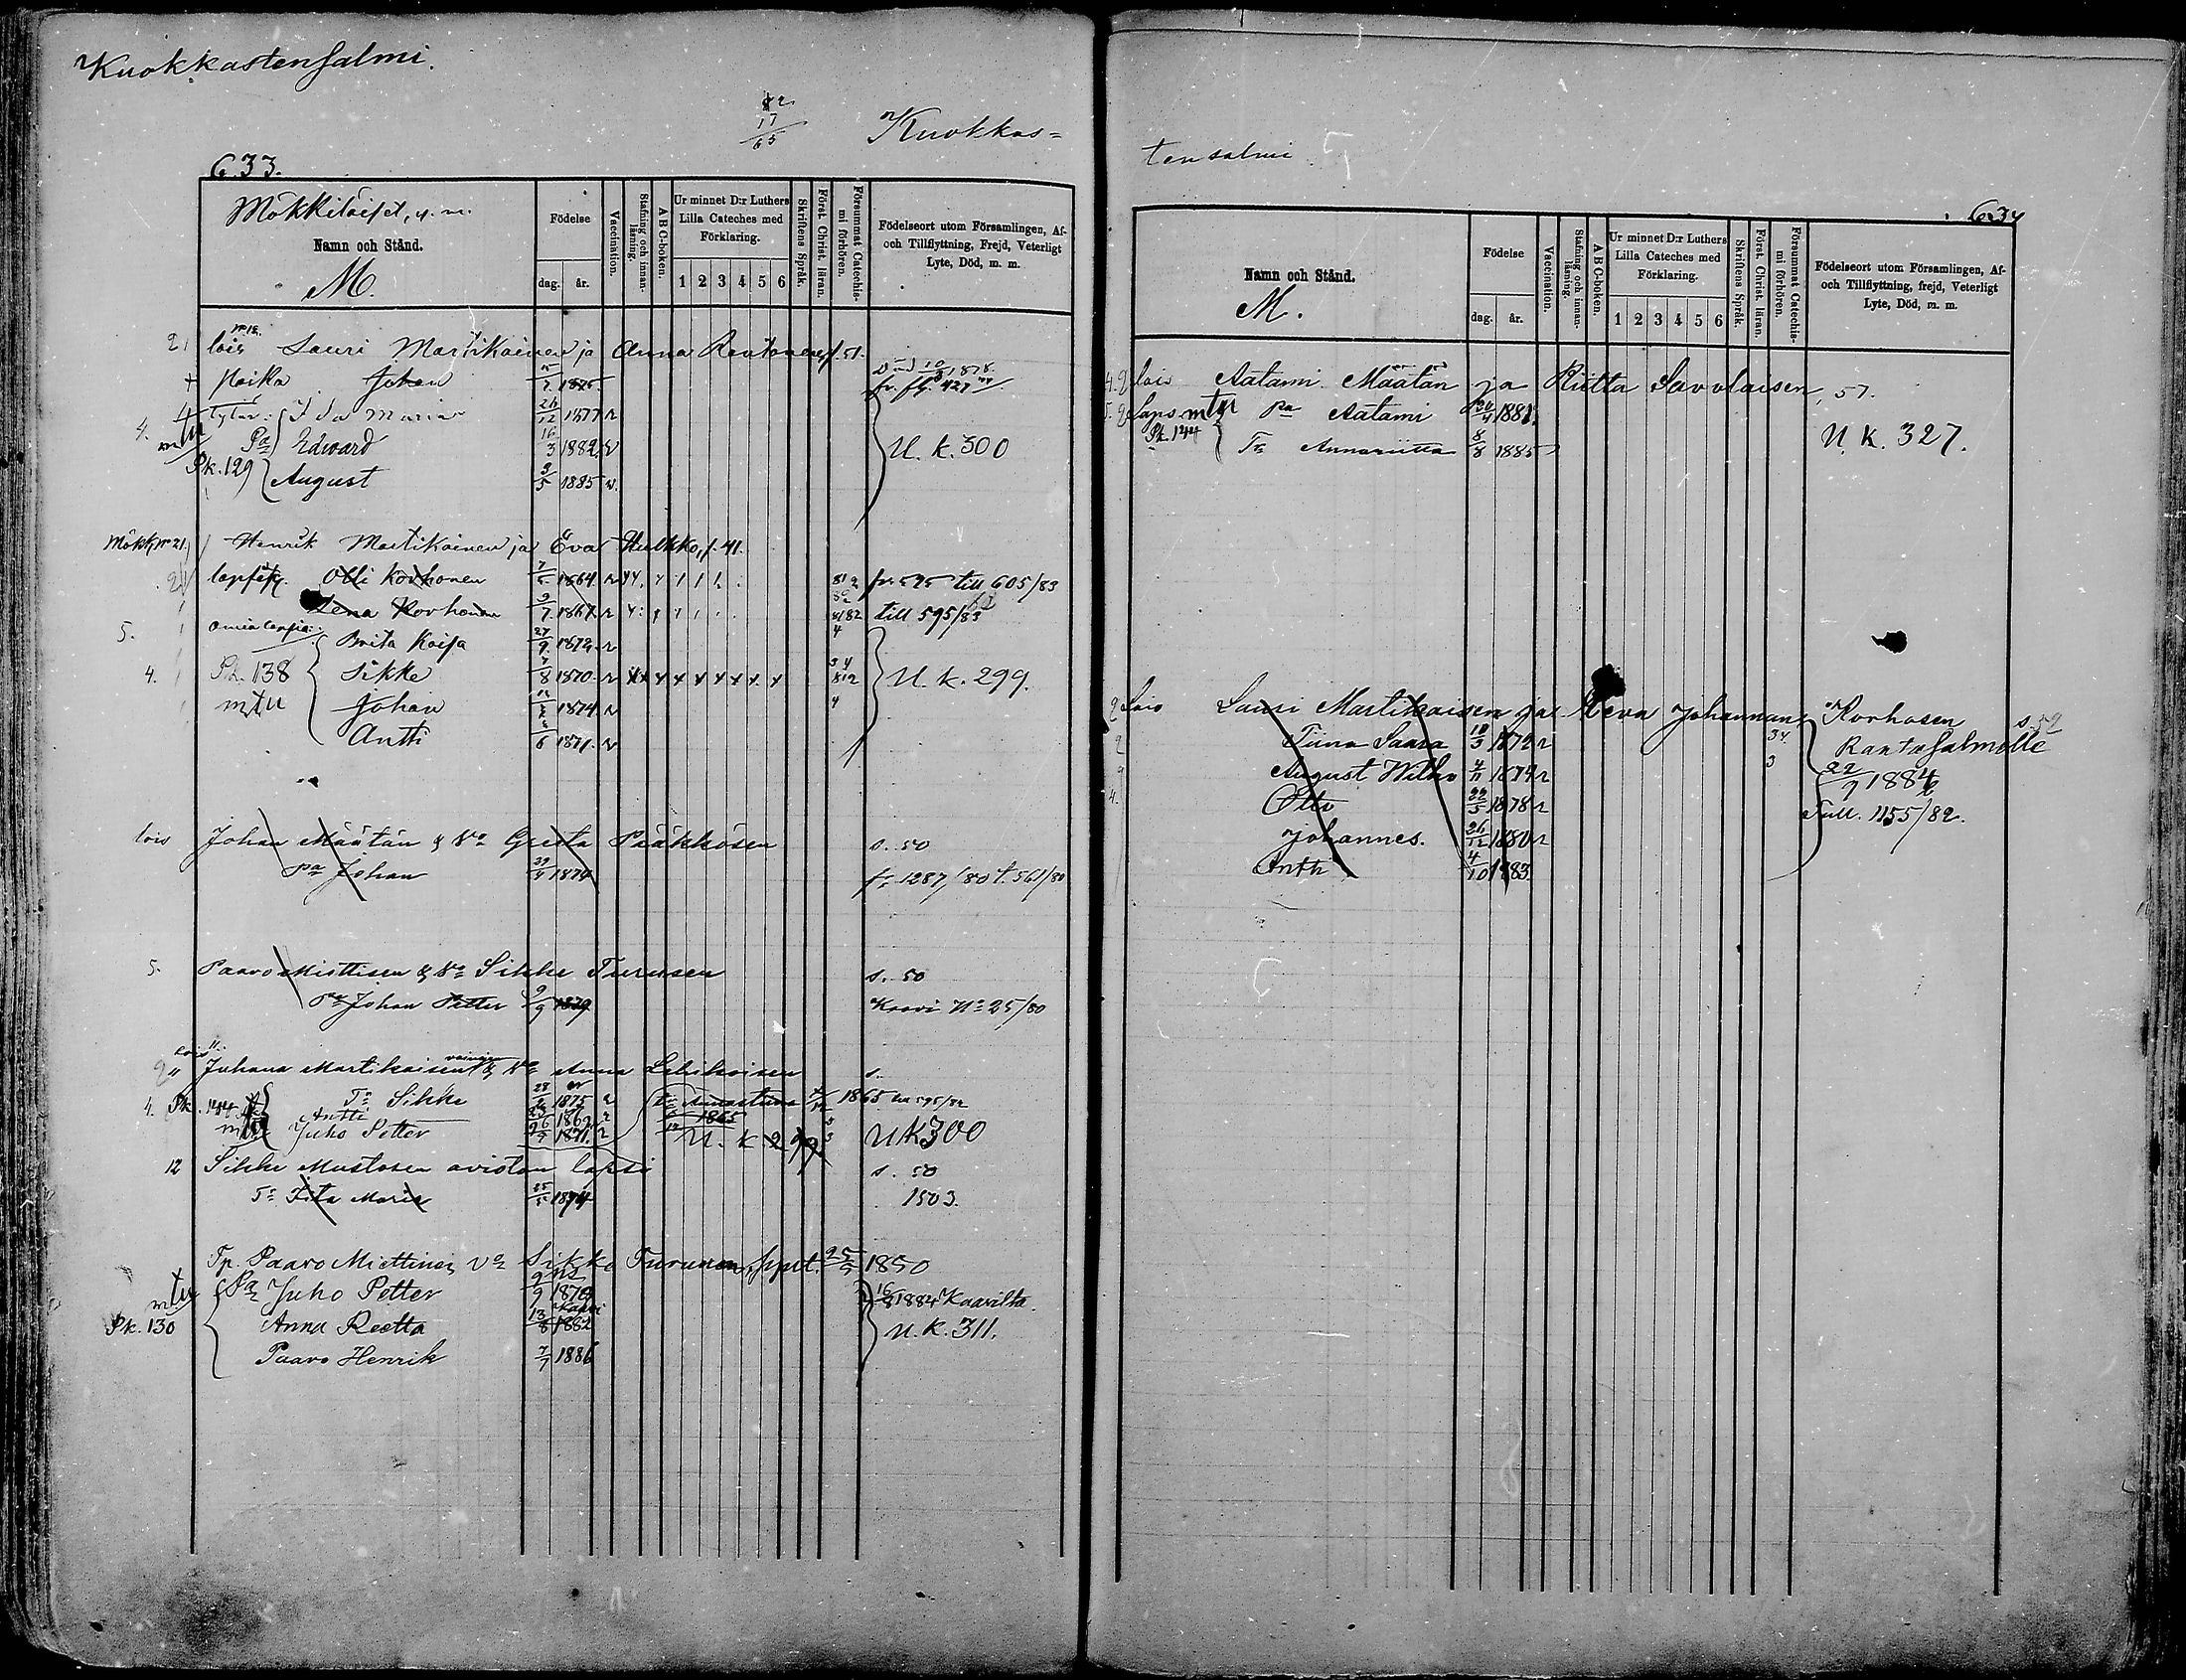 Kuokkastensalmi.
12
17
65
Kuokkas=
633.
Mökkiläiset, y. m.
Namn och Stånd.
M.
Födelse
dag. år.
Vaccination.
Stafning och innanläsning.
A B C-boken.
Ur minnet D:r Luthers Lilla Cateches med Förklaring.
1 2 3 4 5 6
Skriftens Språk.
Först. Christ. läran.
Försummat Catechismi förhören.
Födelseort utom Församlingen, Af- och Tillflyttning, Frejd, Veterligt Lyte, Död, m. m.
lois Lauri Martikainen ja Anna Rautanen, s. 51.
Poika Johan 1875 1878. fr. 427
tytär: Ida Maria 26/12 1877 v
Pa Edward 16/3 1882 v U. k. 300
Pk. 129 August 9/5 1885 v.
Mökk. N:o 21. Henrik Martikainen ja Eva Hulkko, s. 41.
Olli Korhonen 7/5 1864. v fr. 595 till 605/83
Lena Korhonen 9/7 1867. v till 595/83
5. omia lapsia: Brita Kaisa 27/9 1872. v
4. Pk. 138 Sikke 7/8 1870. v U. k. 299.
mtu Johan 1874 v
Antti 6 1871. v
lois Johan Määtän & Va Greta Pääkkösen s. 50
Pa Johan 29/4 1874 fr. 1287/80 t. 561/80
5. Paavo Miettisen & Va Sikke Turusen s. 50
Pa Johan Petter 9/9 1879 Kaavi No 25/80
lois
Juhana Martikaisen & Va Anna Lehikoisen s.
4. Pk. 144 Tr Sikke 1875 v 1865 595/82
Antti 1865
Juho Petter 1871. v U. k 299 U K 300
12 Sikke Mustosen avioton lapsi s. 50
Tr Maria 25/5 1874 1503.
Tp. Paavo Miettinen, Va Sikke Turunen, synt. 25/5 1850
mtu Pa Juho Petter 9/9 1879 16/8 1884 Kaavilta.
Kaavi
Pk. 130 Anna Reetta 13/8 1882 U. k. 311.
Paavo Henrik 7/7 1886
tensalmi
634
Namn och Stånd.
M.
Födelse
dag. år.
Vaccination.
Stafning och innanläsning.
A B C-boken.
Ur minnet D:r Luthers Lilla Cateches med Förklaring.
1 2 3 4 5 6
Skriftens Språk.
Först. Christ. läran.
Försummat Catechismi förhören.
Födelseort utom Församlingen, Af- och Tillflyttning, frejd, Veterligt Lyte, Död, m. m.
lois Aatami Määtän ja Riitta Savolaisen, 57.
laps mtu Pa Aatami 1881.
Pk. 144 Tr Annariitta 8/8 1885 U. K. 327.
2 Lois Lauri Martikaisen ja Eeva Johannan Korhosen s. 52
Tiina Saara 10/3 1872 v 34 Rantasalmelle
August Wilho 4/11 1874 v 3 22/9 1884
Otto 22/5 1878 v Tull. 1155/82.
Johannes. 26/12 1880 v
Antti 4/10 1883.